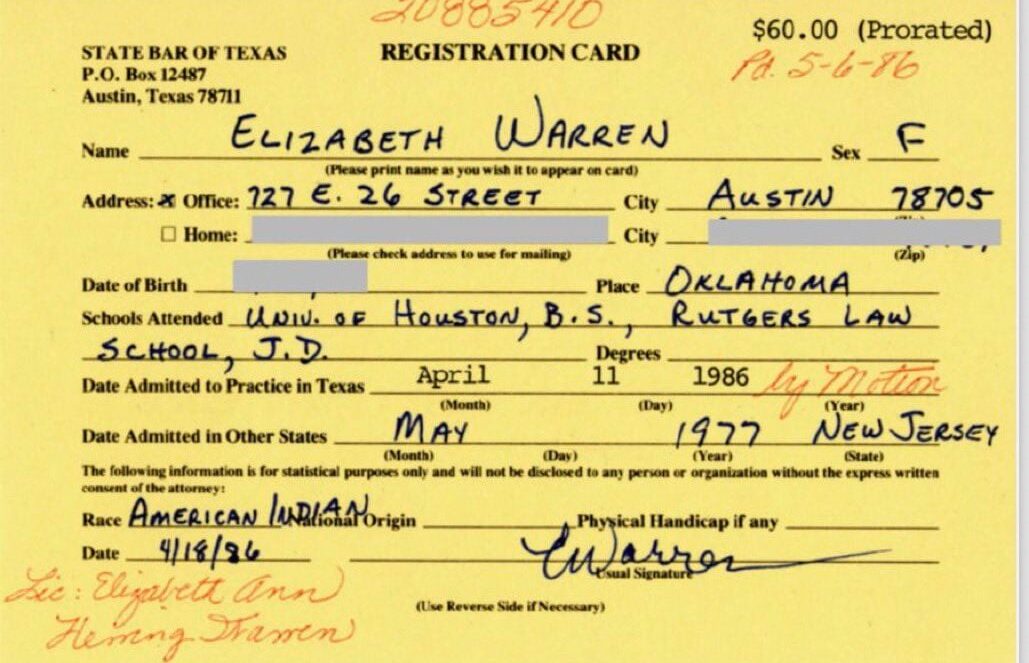 20885410
$60.00 (Prorated)
STATE BAR OF TEXAS REGISTRATION CARD Pd. 5-6-86
P.O. Box 12487
Austin, Texas 78711
Name ELIZABETH WARREN Sex F
(Please print name as you wish it to appear on card)
Address: ☒ Office: 727 E. 26 STREET City AUSTIN 78705
☐ Home: City
(Please check address to use for mailing) (Zip)
Date of Birth Place OKLAHOMA
Schools Attended UNIV. OF HOUSTON, B.S., RUTGERS LAW
SCHOOL, J.D. Degrees
Date Admitted to Practice in Texas April 11 1986 by Motion
(Month) (Day) (Year)
Date Admitted in Other States MAY 1977 NEW JERSEY
(Month) (Day) (Year) (State)
The following information is for statistical purposes only and will not be disclosed to any person or organization without the express written
consent of the attorney:
Race AMERICAN INDIAN National Origin Physical Handicap if any
Date 4/18/86 EWarren
Usual Signature
Lic: Elizabeth Ann
Herring Warren
(Use Reverse Side if Necessary)